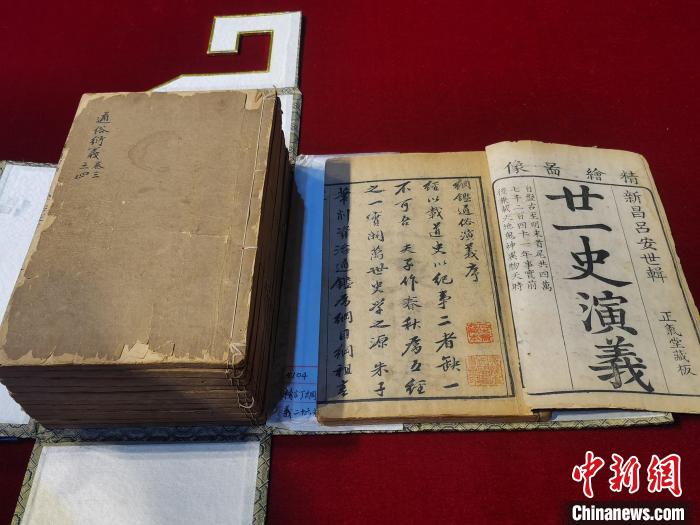 通俗衍義卷三
三四
綱鑑通俗演義序
經以載道史以紀事二者缺一
不可吾夫子作春秋為五經
之一實開萬世史學之源朱子
筆削資治通鑑為綱目綱祖
精繪圖像
新昌呂安世輯
廿一史演義
自盤古至明末首尾共四萬
七千二百四十一年事實前
後兼載天地鬼神異物天時
正氣堂藏板
中新网
Chinanews.com